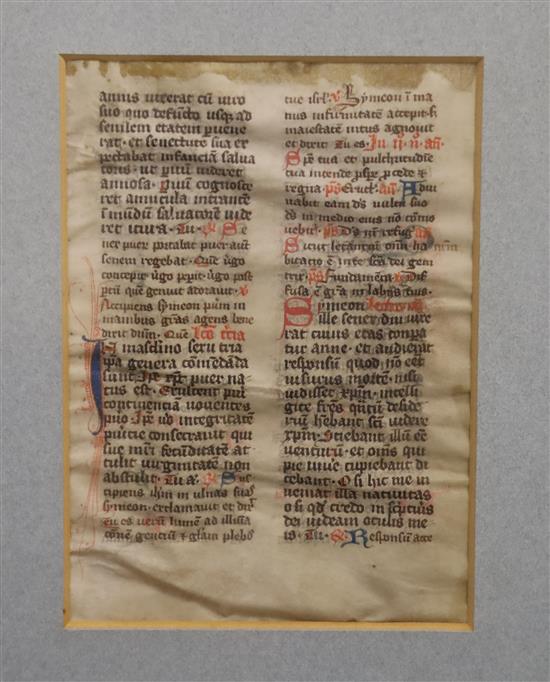 annis vixerat cū viro
suo quo defūcto usqꝫ ad
senilem etatem puene
rat · et senectute sua ex
pectabat infanciā salua
toris · ut pꝛium uideret
annosa · pꝛuū cognosce
ret anicula intrantē
ī mūdū saluatorē uide
ret · Tu · R Se
nex puer portabat puer autē
senem regebat · Quē ūgo
concepit ūgo peperit · ūgo post
ptū quē genuit adorauit · v
Accipiens symeon puꝝ in
manibus grās agens bene
dixit dnm · Quē Lco tcia
In masclino sexu tria
ipa genera comēdāda
sunt Ipe xpc puer na
tus est · Exultent pui
continenciā vouentes
puo Ipe uo integritatē
puicie consecrauit qui
sue mri fecūditatē at
tulit virginitatē non
abstulit · Tu a · R Sus
cipiens ihm in ulnas suas
symeon · exclamauit et dix
tu es uerū lumē ad illuīa
conē genciū ⁊ glaiꝫ plebis
tue isrl · v Symeon ī ma
nus infirmitatē accepit · s
maiestatē intus agnouit
et dixit Tu es · In ii · n · an
Spe tua et pulchritudīe
tua intende pspe pcede ⁊
regna · ps Eruct · an · Adiu
uabit eam ds uultu suo
ds in medio eius nō cōmo
uebit · ps Ds nr refug · an
Sicut letantiū oīm
habitacio ē inte scā dei geni
trix · ps Fundamenta v Dif
fusa ē gra in labiis tuis ·
Symeon
ille senex diu vixe
rat cuius etas compa
tur anne · et audierat
responsū quod nō eēt
uisurus mortē · nisi
uidisset xpm · intelli
gite frēs qntū deside
riū hēbant sci uidere
xpm · Sciebant illū eē
uenturū · et oms qui
pie uiue cupiebant di
cebant · O si hic me in
ueniat illa natiuitas
o si qd credo in scpturis
dei uideam oculis me
is · Tu · R Responsū acce